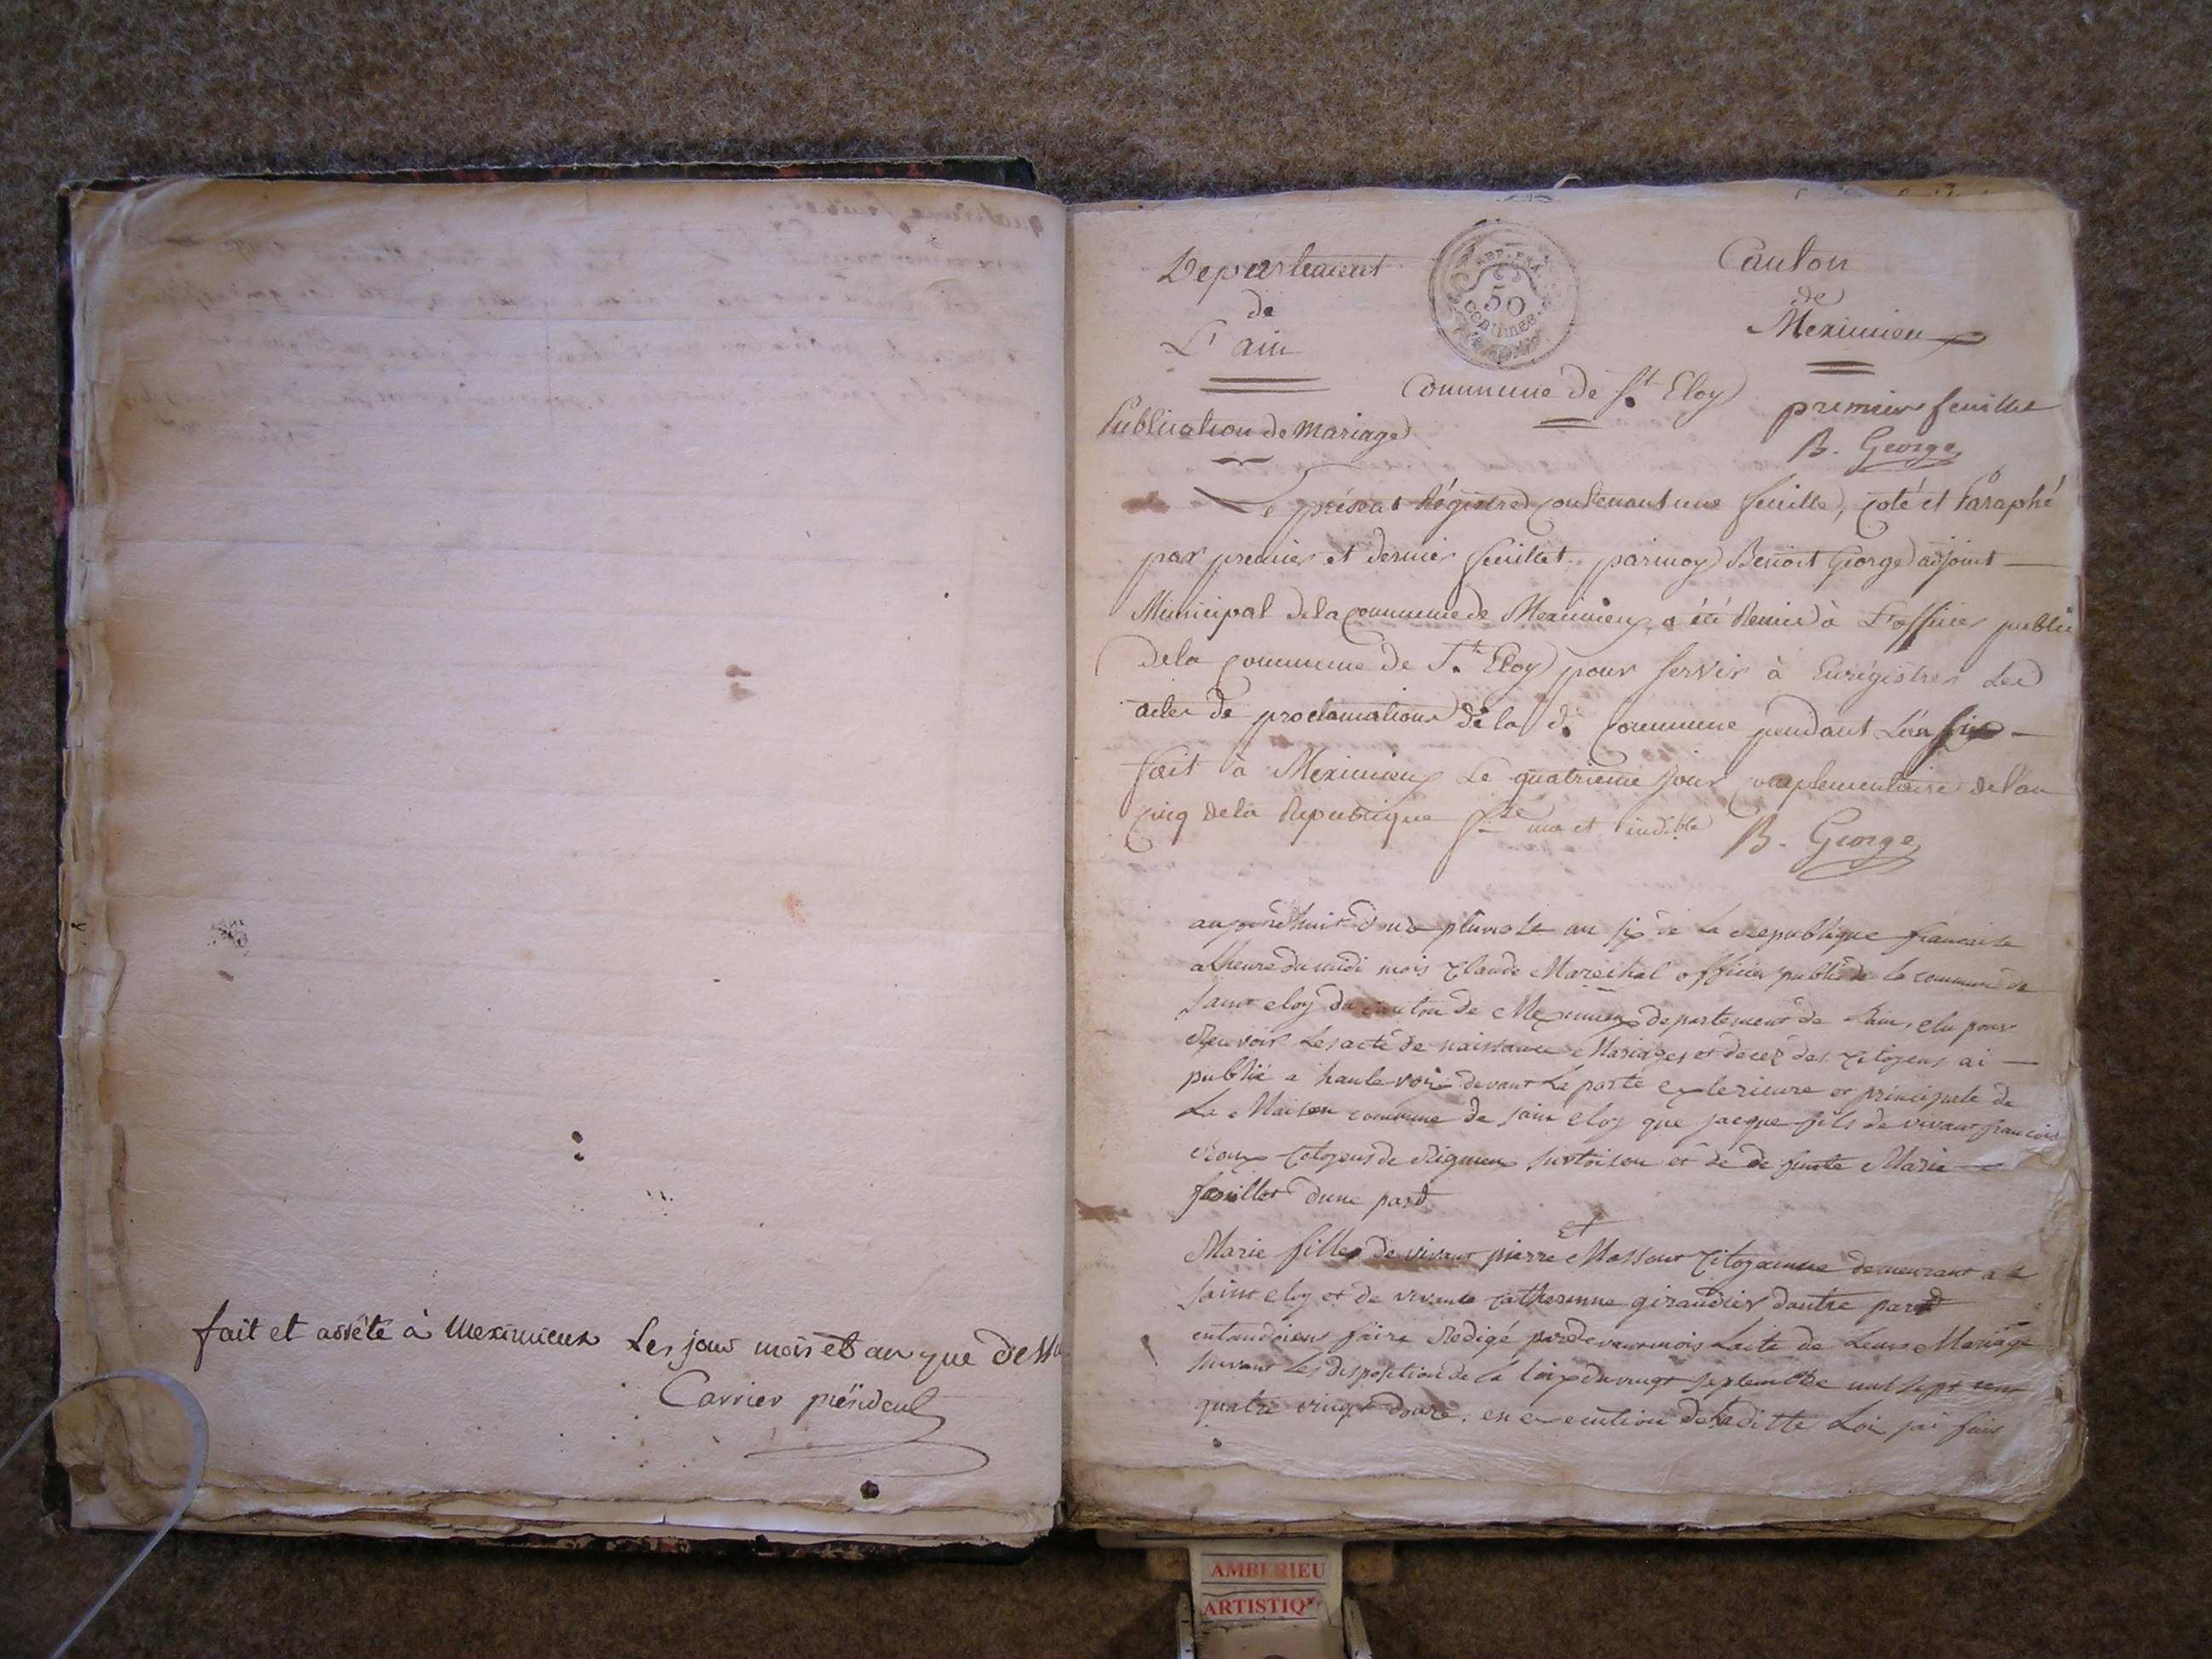 fait et arrêté à Meximieux Les jour mois et an que dessu
Carrier président
Departement
de
L'ain
REP. FRA.
50
centimes
Canton
de
Meximieu
Commune de St. Eloy
premier feuillet
B. George
Publication de mariage
Le présent Régistre contenant une feuille, coté et Paraphé
par premier et dernier feuillet, par moy Benoit George adjoint
Municipal de la commune de Meximieux, a été Remis à L'officier public
de la commune de St. Eloy pour servir à Enrégistrer Les
actes de proclamations de la de. commune pendant L'an six
fait à Meximieux Le quatrieme jour complementaire de l'an
cinq de la Republique fse une et indible B. George
aujourdhuit pluviose an six de la republique francaise
a lheure du midi mois Claude Marechal officier public de la commune de
saint eloy du canton de Meximieux departement de Lain, elu pour
Recevoir Les acte de naissance Mariages et decez des Citoyens ai
publié a haute voix devant La porte exterieure et principale de
La Maison commune de saint eloy que jacque fils de vivant francois
Roux Citoyens de Rignieu surtoison et de de funte Marie
feuillet dune part
et
Marie filles de vivant pierre Massout Citoyenne demeurant a
saint eloy et de vivante Catherinne giraudier dautre part
entandoient faire Redigé pardevant mois Lacte de Leurs Mariage
suivant Les disposition de la loix du vingt septembre mil sept cent
quatre vingt douze, en execution de Laditte Loi jai fait
AMBERIEU
ARTISTIQ